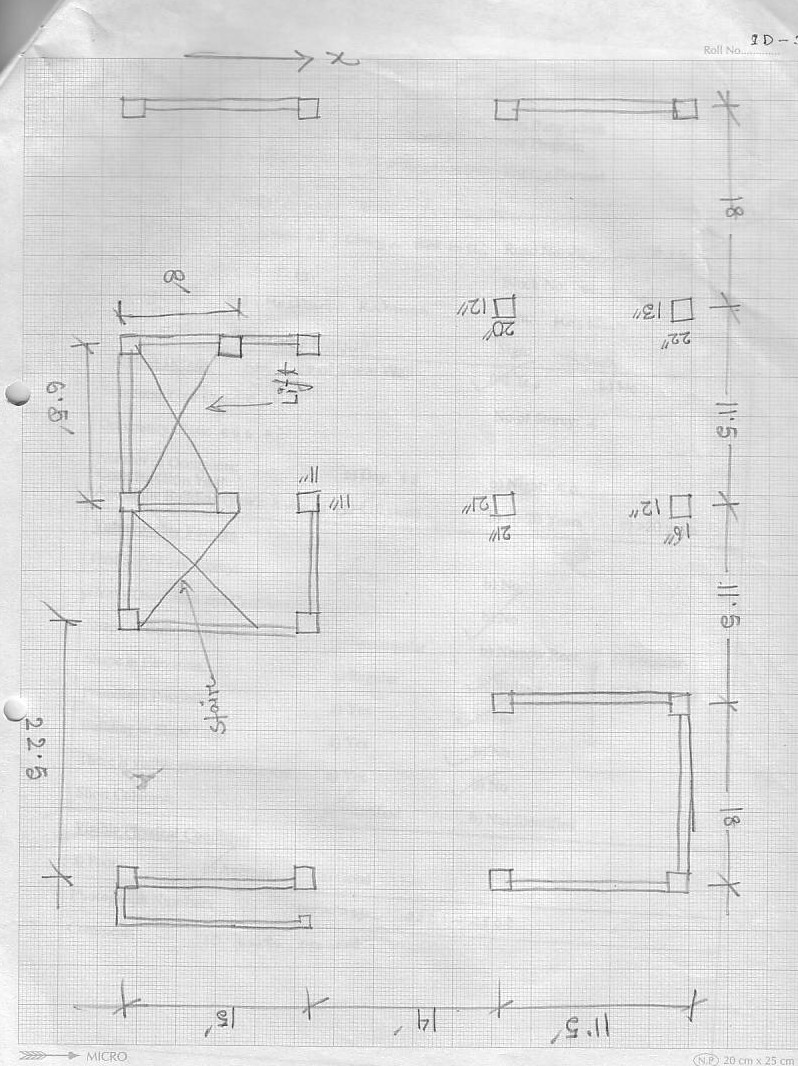 1D-
Roll No..............
x
18
8'
12"
20"
13"
22"
Lift
6.5'
11.5
11"
11"
21"
21"
12"
18"
11.5
Stair
22.5
18
15'
14'
11.5'
MICRO
N.P. 20 cm x 25 cm